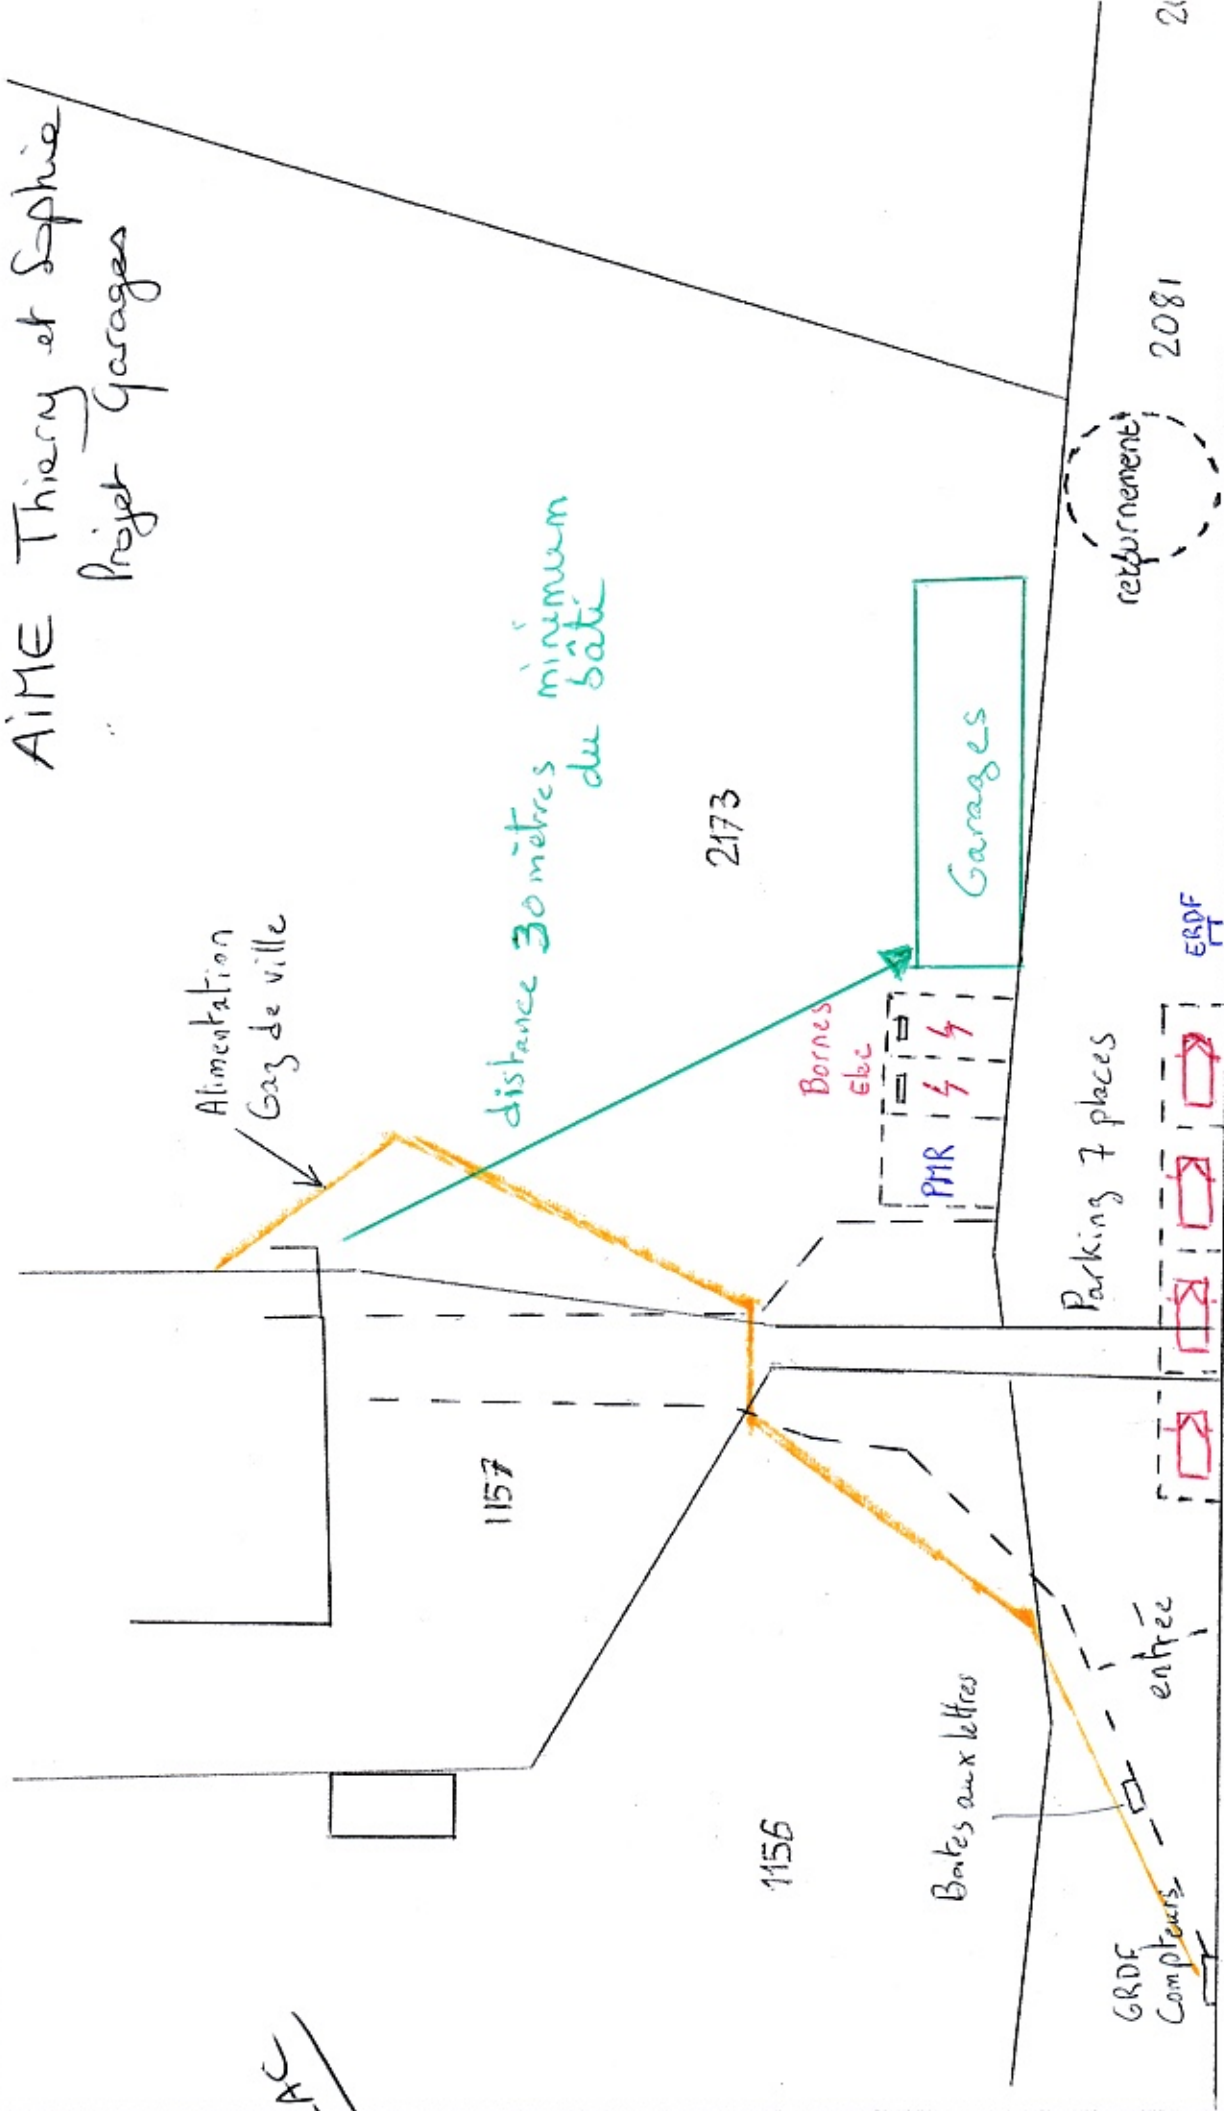 AiME Thierry et Sophie
Projet Garages
Alimentation
Gaz de ville
distance 30 mètres minimum
du bâti
2173
Garages
Bornes
Elec
PMR
retournement
2081
Parking 7 places
ERDF
1157
1156
Boites aux lettres
entrée
GRDF
Compteurs